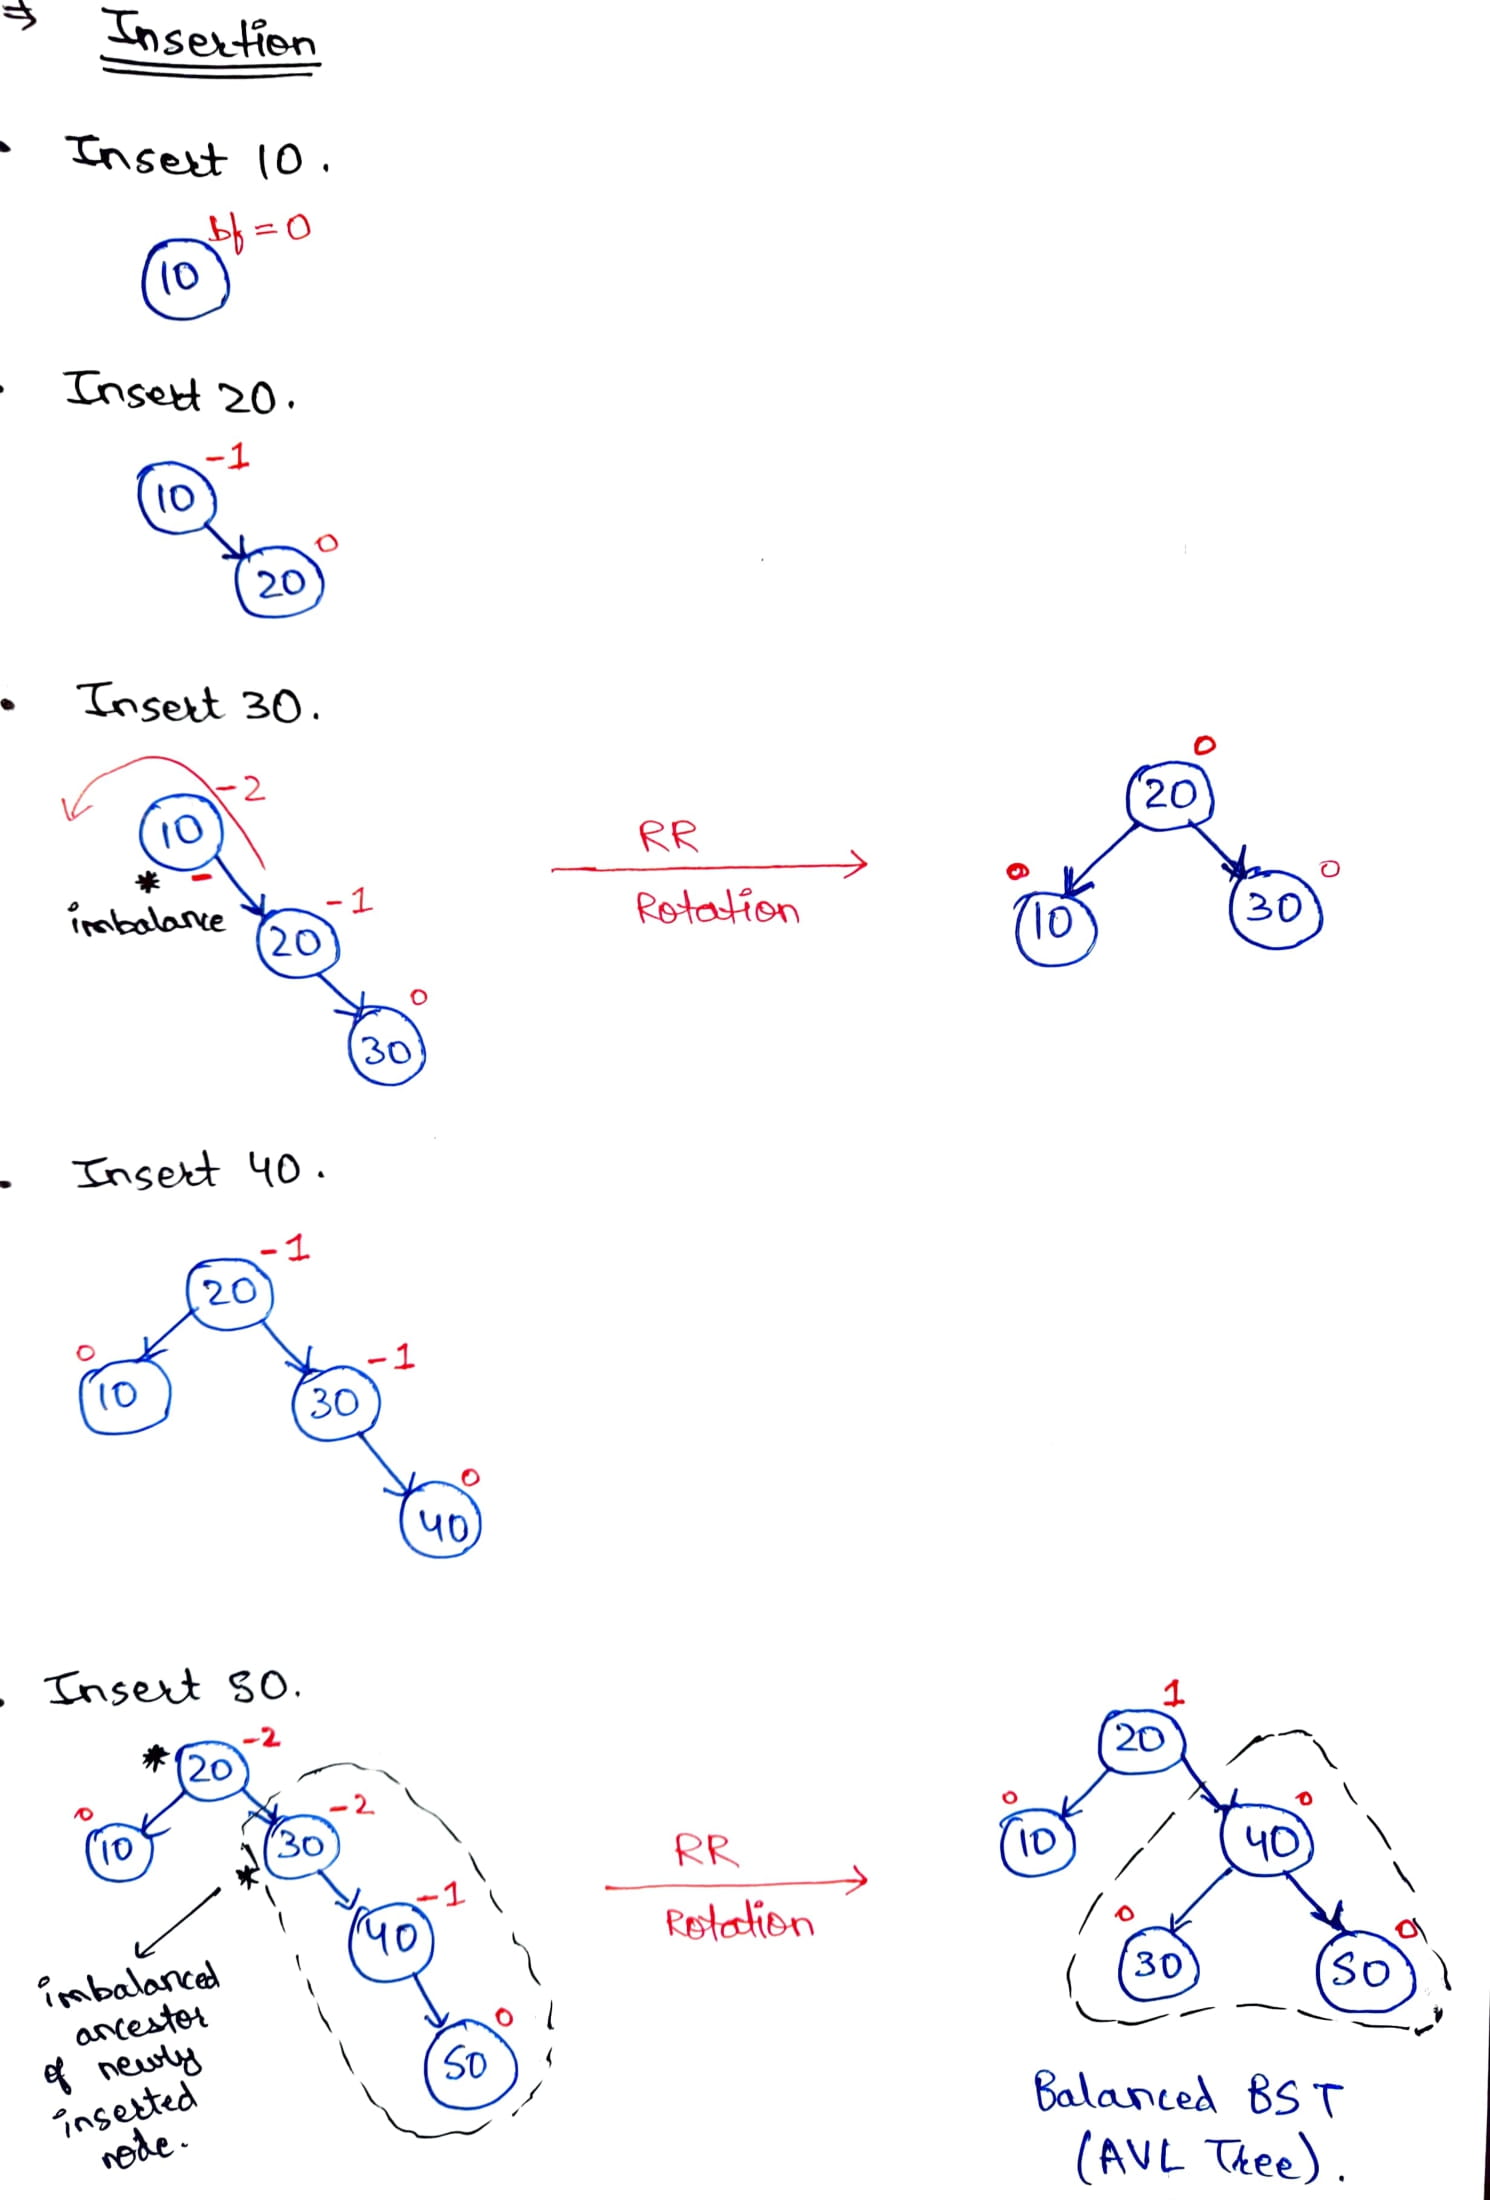 ⇒ Insertion
• Insert 10.
bf = 0
10
• Insert 20.
-1
10
0
20
• Insert 30.
-2
10
* -
imbalance
-1
20
0
30
RR
Rotation
0
20
0
10
0
30
• Insert 40.
-1
20
0
10
-1
30
0
40
• Insert 50.
* 20 -2
0
10
-2
30
*
-1
40
0
50
imbalanced
ancestor
of newly
inserted
node.
RR
Rotation
1
20
0
10
0
40
0
30
0
50
Balanced BST
(AVL Tree).